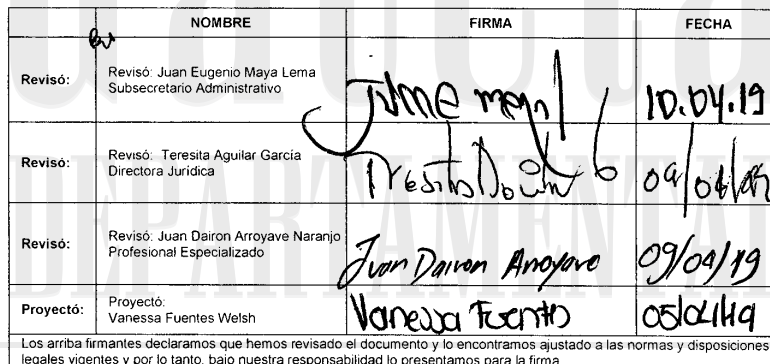 NOMBRE FIRMA FECHA
Revisó: Revisó: Juan Eugenio Maya Lema
Subsecretario Administrativo
10.04.19
Revisó: Revisó: Teresita Aguilar García
Directora Jurídica
Revisó: Revisó: Juan Dairon Arroyave Naranjo
Profesional Especializado
Juan Dairon Arroyave 09/04/19
Proyectó: Proyectó:
Vanessa Fuentes Welsh
Vanessa Fuentes 05/04/19
Los arriba firmantes declaramos que hemos revisado el documento y lo encontramos ajustado a las normas y disposiciones
legales vigentes y por lo tanto, bajo nuestra responsabilidad lo presentamos para la firma
DEPARTAMENTAL